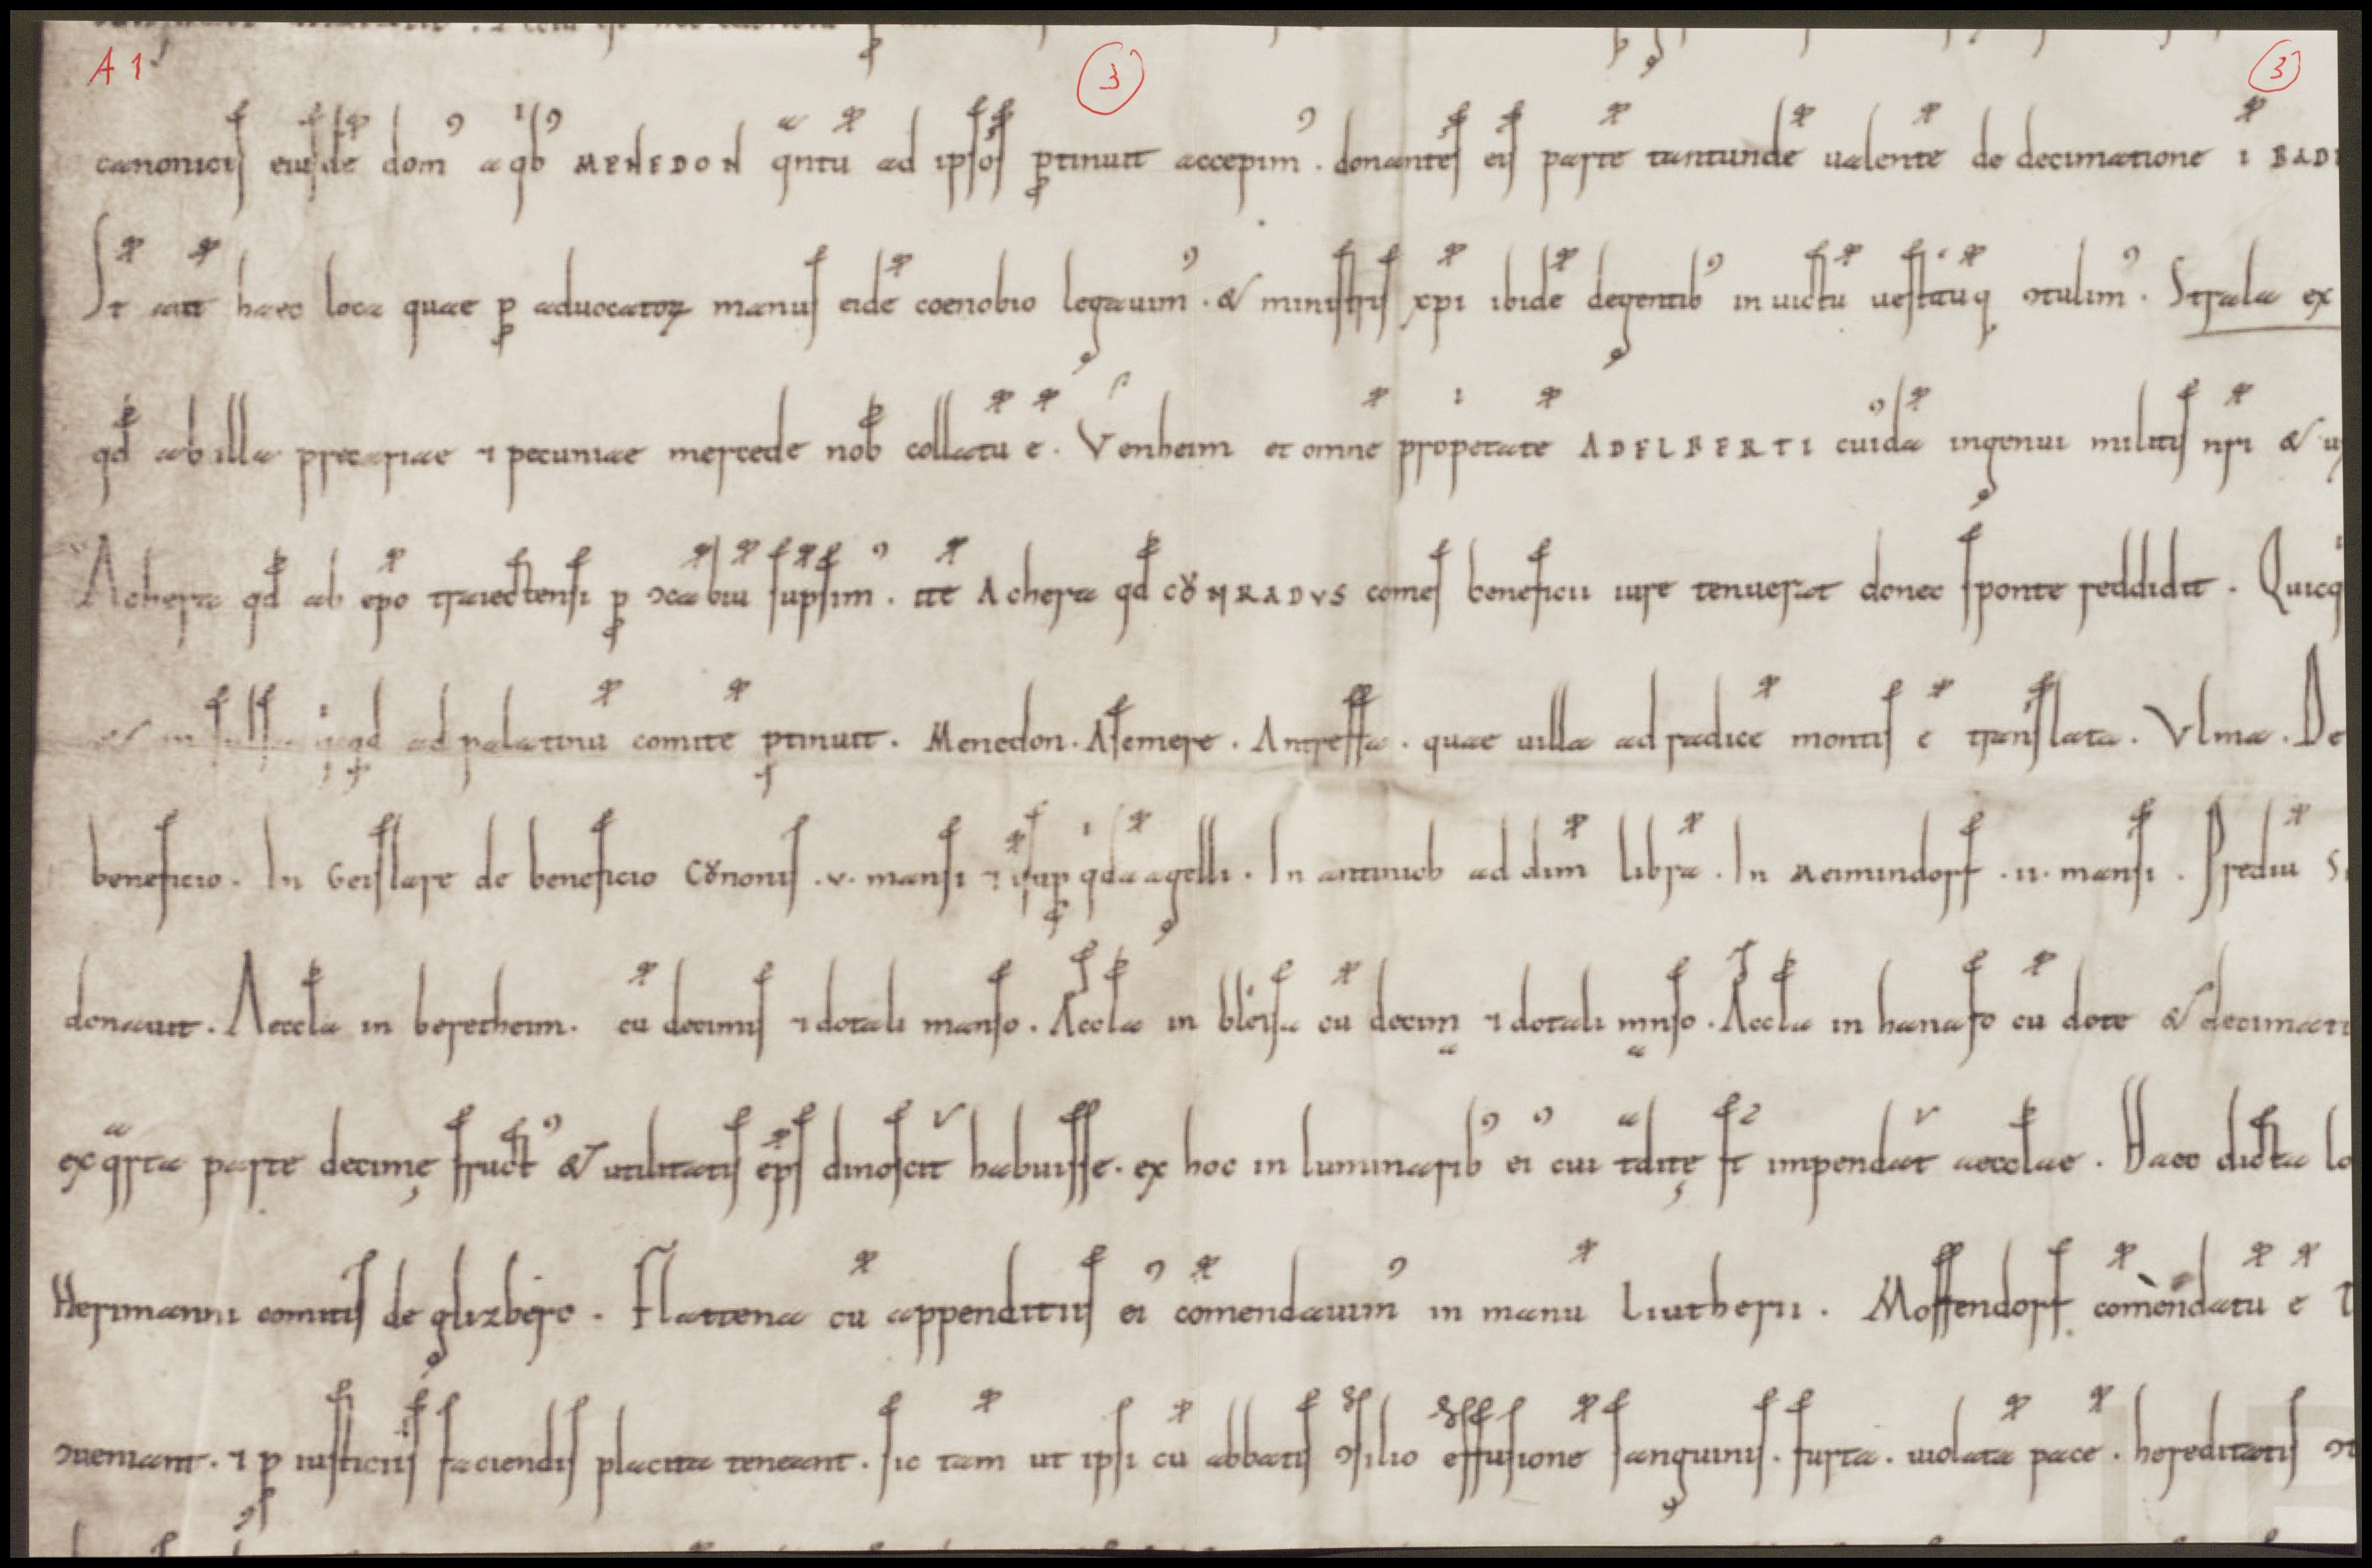 A 1 3 3
canonicis eiusdē domꝰ a qⁱbꝰ MENEDON qᵃntū ad ipsos ꝑtinuit accepimꝰ . donantes eis partē tantundē ualentē de decimatione ī BADI
St̄ aūt haec loca quae ꝑ aduocatoꝝ manus eidē coenobio legauimꝰ . & ministris xp̄i ibidē degentibꝰ in uictū uestitūq; ꝯtulimꝰ . Strala ex
qd̄ ab illa precariae ⁊ pecuniae mercede nob̄ collatū ē . Venheim et omnē propⁱetatē ADELBERTI cuiꝰdā ingenui militis nr̄i & ux
Achera qd̄ ab ep̄o traiectensi ꝑ ꝯcābiū sūpsimꝰ . itē Achera qd̄ CŏNRADVS comes beneficii iure tenuerat donec sponte reddidit . Quicqⁱ
ad palatinū comitē ꝑtinuit . Menedon . Asemere . Antreffa . quae uilla ad radicē montis ē translata . Vlma . De
beneficio . In Geislare de beneficio Cŏnonis . v . mansi ⁊ īsuꝑ qⁱdā agelli . In antiniob ad dim̄ librā . In Meimindorf . ii . mansi . Prediū
donauit . Aeccła in beretheim . cū decimis ⁊ dotali manso . Aeccła in bleisa cū decim ⁊ dotali mnso . Aeccła in hanafo cū dote & decimati
ex qᵃrta parte decimę fructꝰ & utilitatis ep̄s dinoscitᵛ habuisse . ex hoc in luminaribꝰ eiꝰ cui tᵃditę st̄ impendatᵛ aecclae . Haec dicta lo
Herimanni comitis de glizberc . Flattena cū appenditiis eiꝰ cōmendauimꝰ in manū Liutherii . Moffendorf cōmendatū ē
ꝯueniant . ⁊ ꝑ iusticiis faciendis placita teneant . sic tam̄ ut ipsi cū abbatis ꝯsilio effusionē sanguinis . furta . uiolatā pacē . hereditatis ꝯt